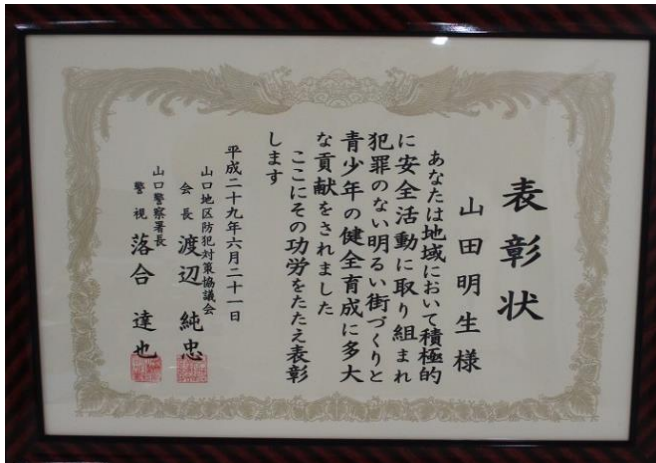 表彰状
山田明生様
あなたは地域において積極的
に安全活動に取り組まれ
犯罪のない明るい街づくりと
青少年の健全育成に多大
な貢献をされました
ここにその功労をたたえ表彰
します
平成二十九年六月二十一日
山口地区防犯対策協議会
会長 渡辺純忠
山口警察署長
警視 落合達也